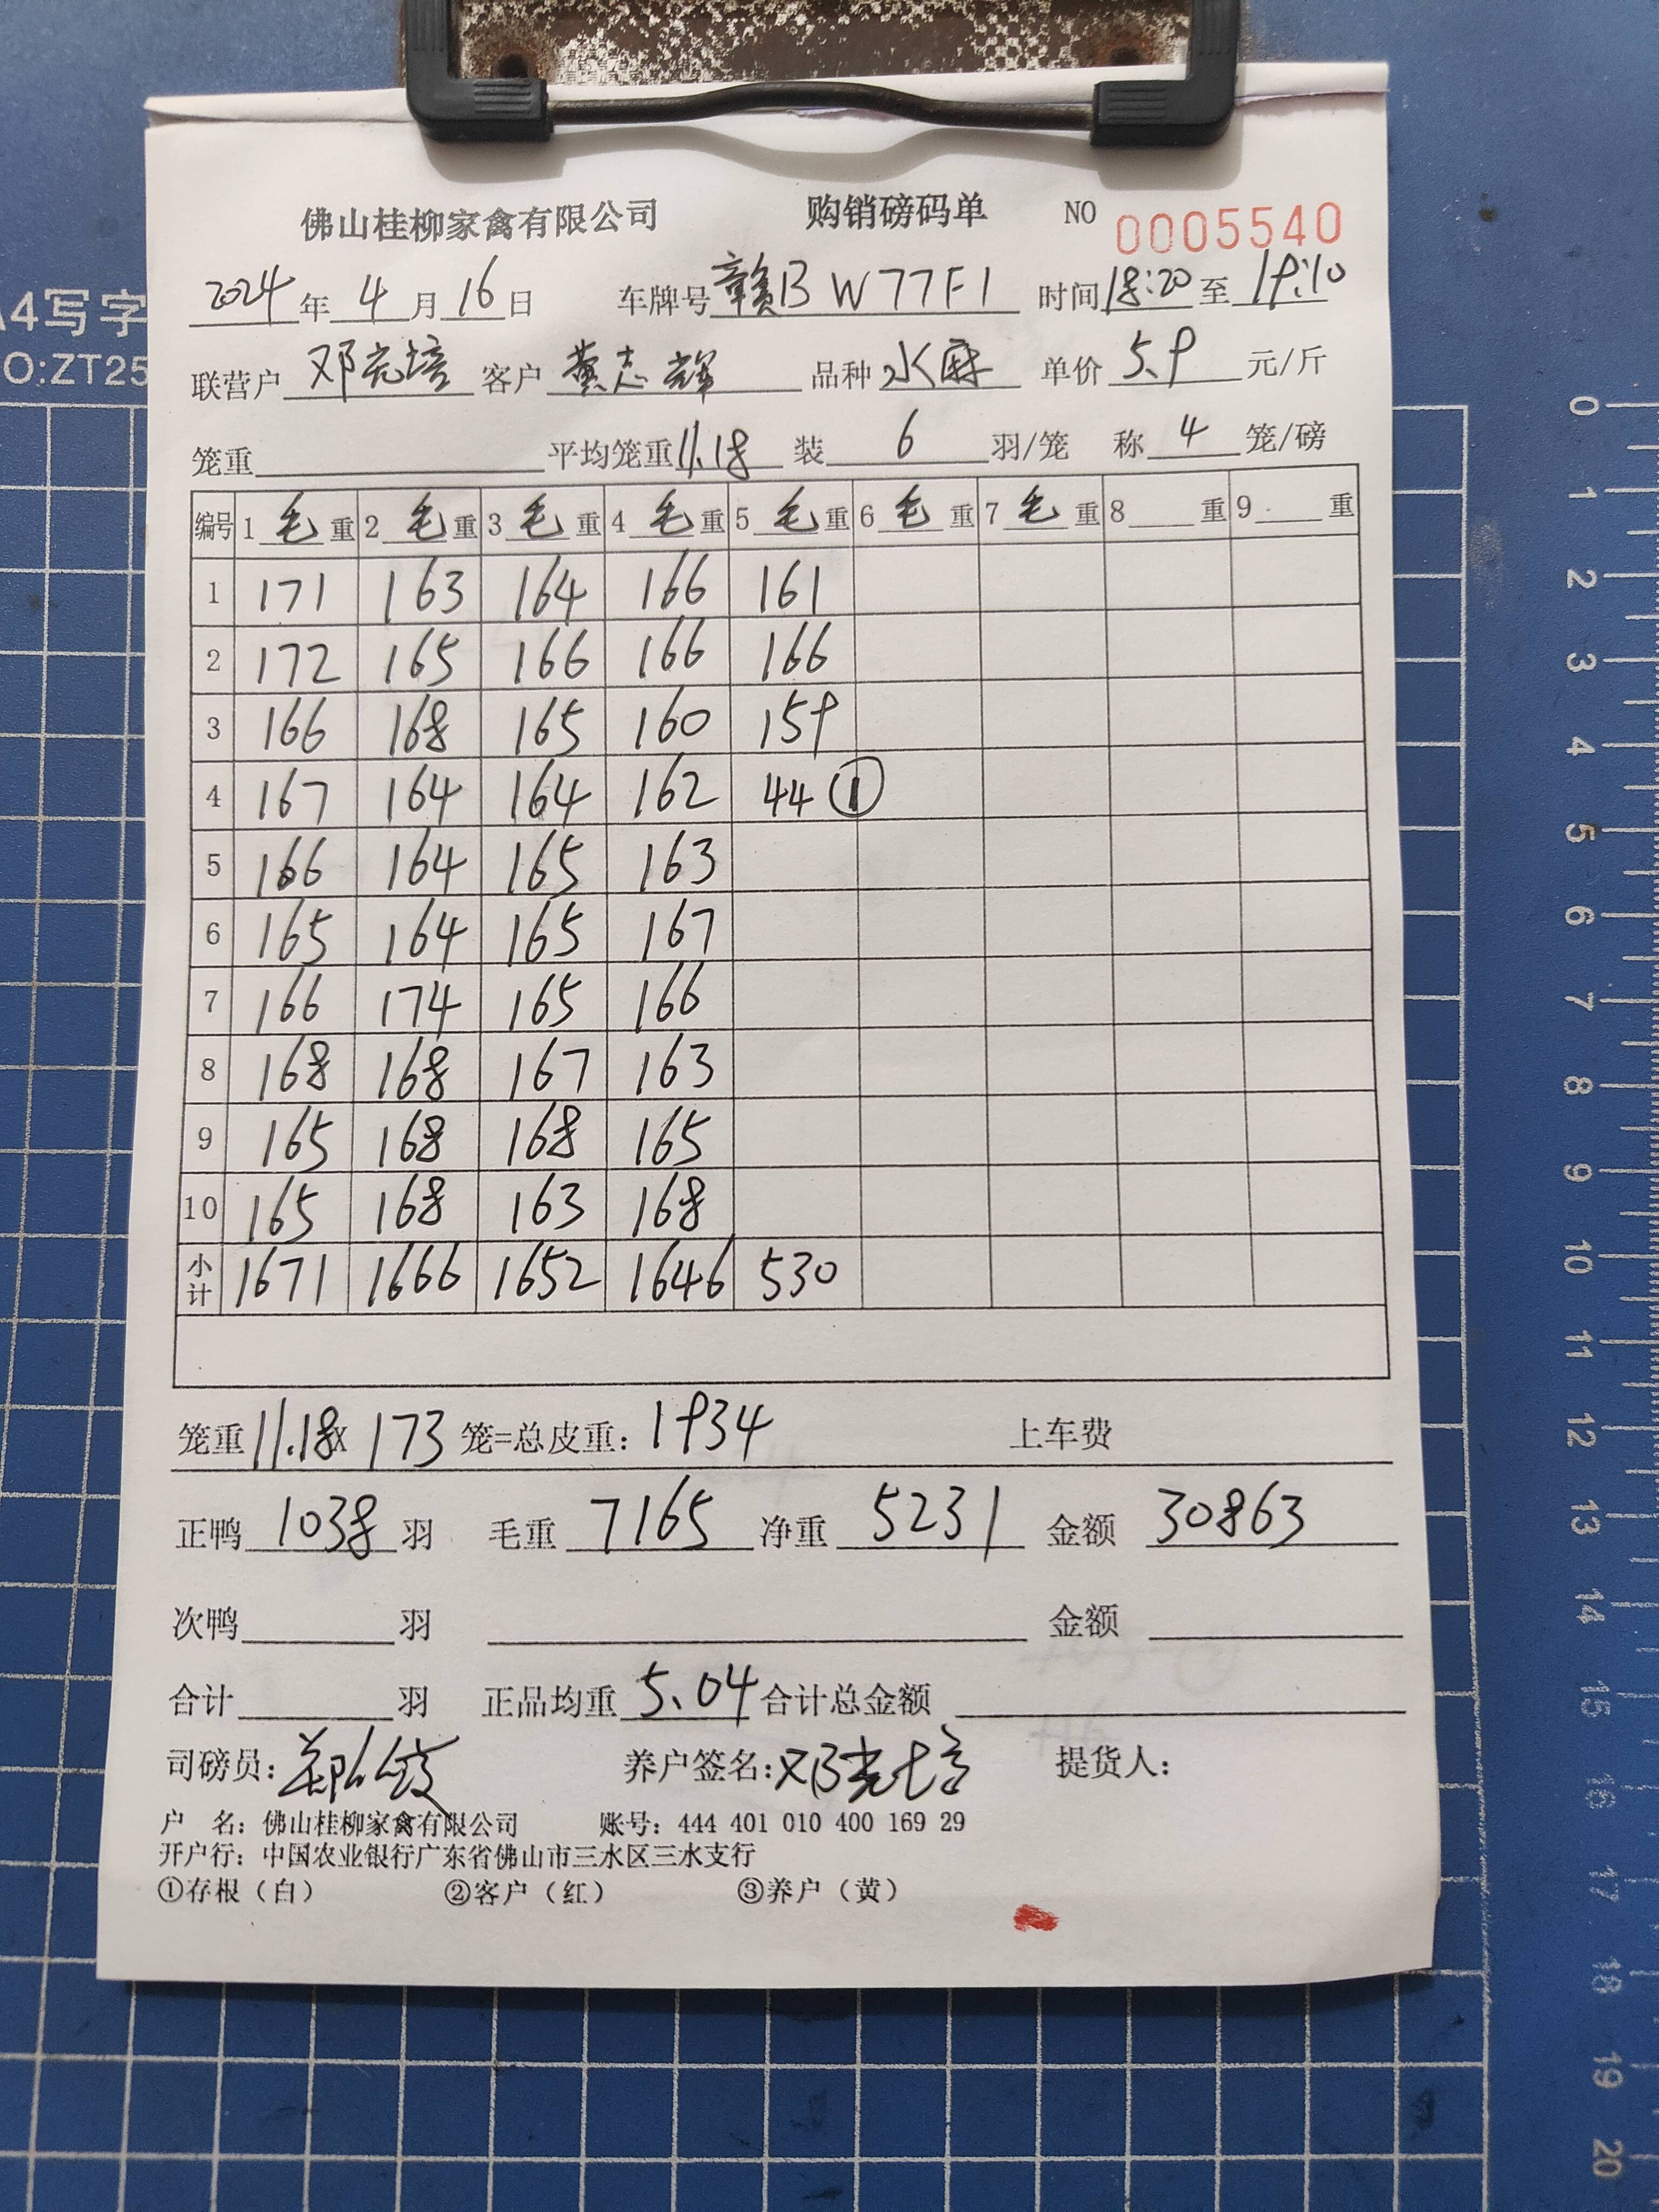 A4写字
NO:ZT25
佛山桂柳家禽有限公司 购销磅码单 NO 0005540
2024年4月16日 车牌号赣B W77F1 时间18:20至19:10
联营户邓光培 客户黄志辉 品种水麻 单价5.9元/斤
笼重 平均笼重11.18 装6羽/笼 称4笼/磅
编号 1毛重 2毛重 3毛重 4毛重 5毛重 6毛重 7毛重 8重 9重
1 171 163 164 166 161
2 172 165 166 166 166
3 166 168 165 160 159
4 167 164 164 162 44 ①
5 166 164 165 163
6 165 164 165 167
7 166 174 165 166
8 168 168 167 163
9 165 168 168 165
10 165 168 163 168
小计 1671 1666 1652 1646 530
笼重11.18X173笼=总皮重:1934 上车费
正鸭1038羽 毛重7165净重5231 金额30863
次鸭 羽 金额
合计 羽 正品均重5.04合计总金额
司磅员: 养户签名:邓光培 提货人:
户 名:佛山桂柳家禽有限公司 账号:444 401 010 400 169 29
开户行:中国农业银行广东省佛山市三水区三水支行
①存根(白) ②客户(红) ③养户(黄)
0
1
2
3
4
5
6
7
8
9
10
11
12
13
14
15
16
17
18
19
20